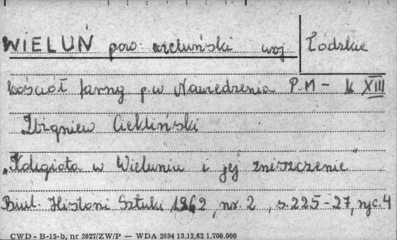 WIELUŃ pow. wieluński woj. Łódzkie
kościół farny p.w Nawiedzenia P.M – k XIII
Zbigniew Ciekliński
„Kolegiata w Wieluniu i jej zniszczenie"
Biul. Historii Sztuki 1962, nr. 2, s. 225-27, ryc. 4
CWD - B-15-b, nr 2827/ZW/P — WDA 2694 13.12.62 1.700.000